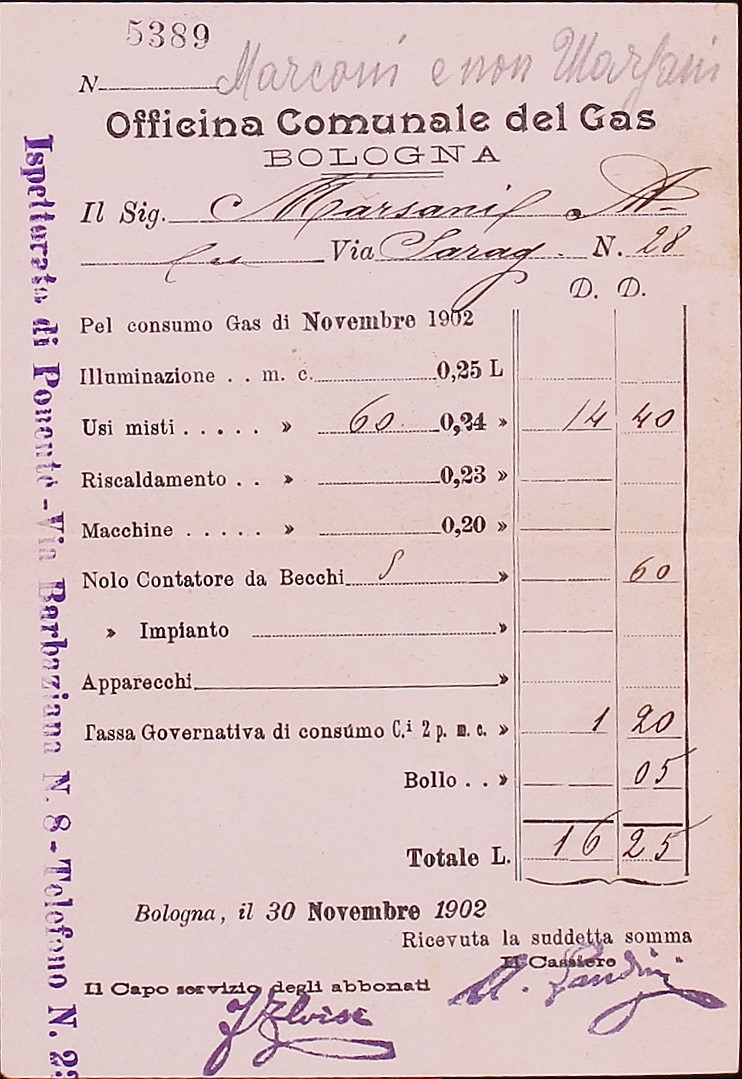 5389
N Marconi e non Marsani
Officina Comunale del Gas
BOLOGNA
Il Sig. Marsanil A
Via Sarag. N. 28
D. D.
Pel consumo Gas di Novembre 1902
Illuminazione . . m. c. 0,25 L
Usi misti . . . . . » 60 0,24 » 14 40
Riscaldamento . . » 0,23 »
Macchine . . . . . » 0,20 »
Nolo Contatore da Becchi 5 » 60
» Impianto »
Apparecchi »
Tassa Governativa di consumo C.i 2 p. m. c. » 1 20
Bollo . . » 05
Totale L. 16 25
Bologna, il 30 Novembre 1902
Ricevuta la suddetta somma
Il Cassiere
Il Capo servizio degli abbonati
Ispettorato di Ponente - Via Barbaziana N. 8 - Telefono N.